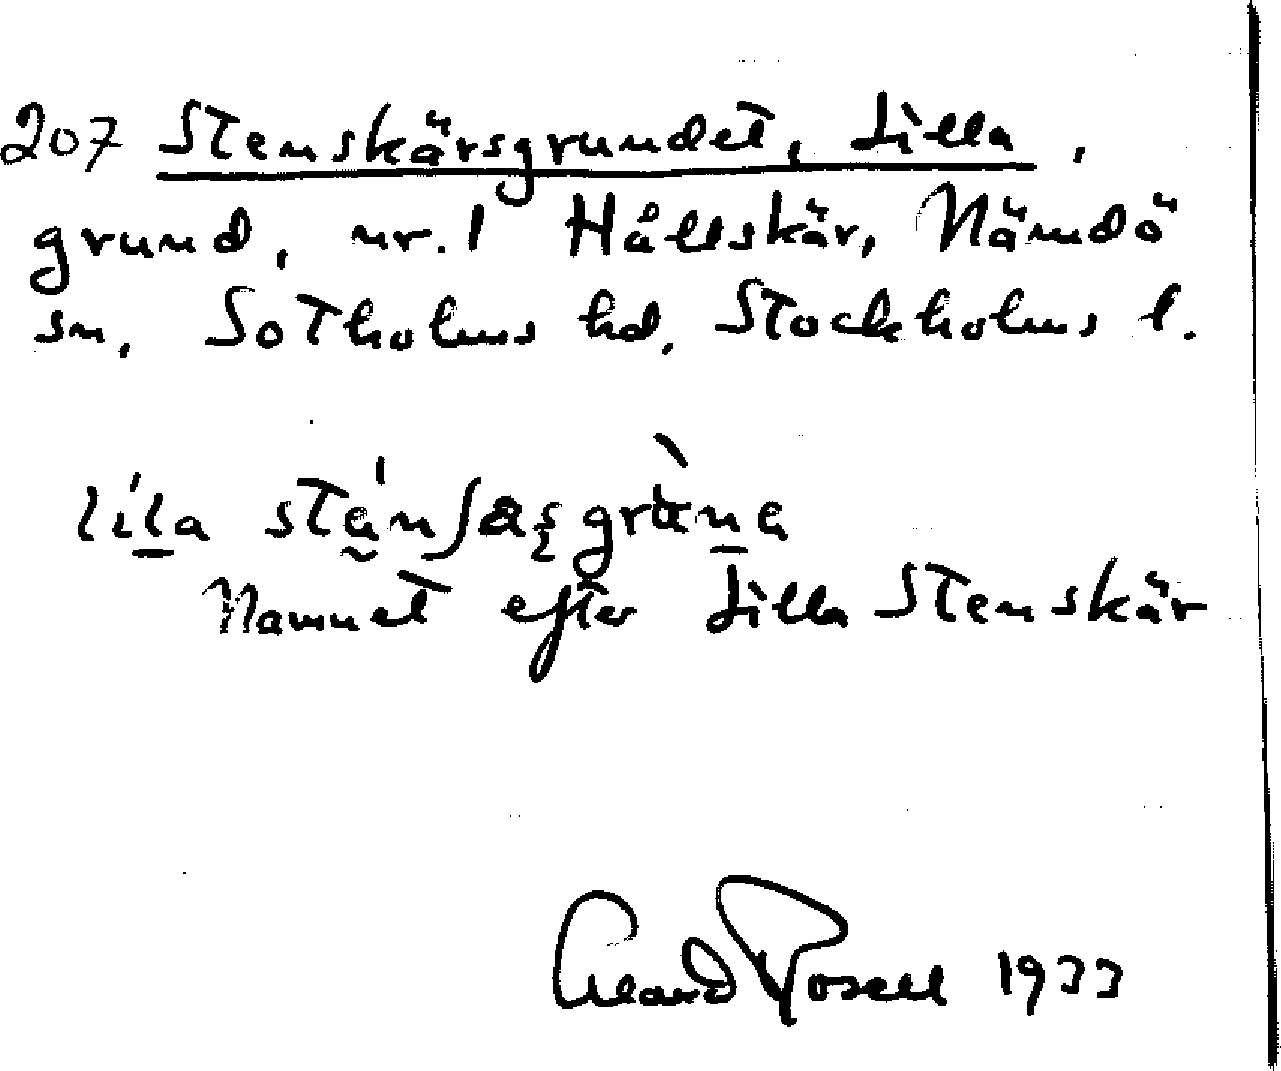 207 Stenskärsgrundet, Lilla,
grund, nr. 1 Hållskär, Nämdö
sn, Sotholms hd, Stockholms l.
Namnet efter Lilla Stenskär
Rosell 1933